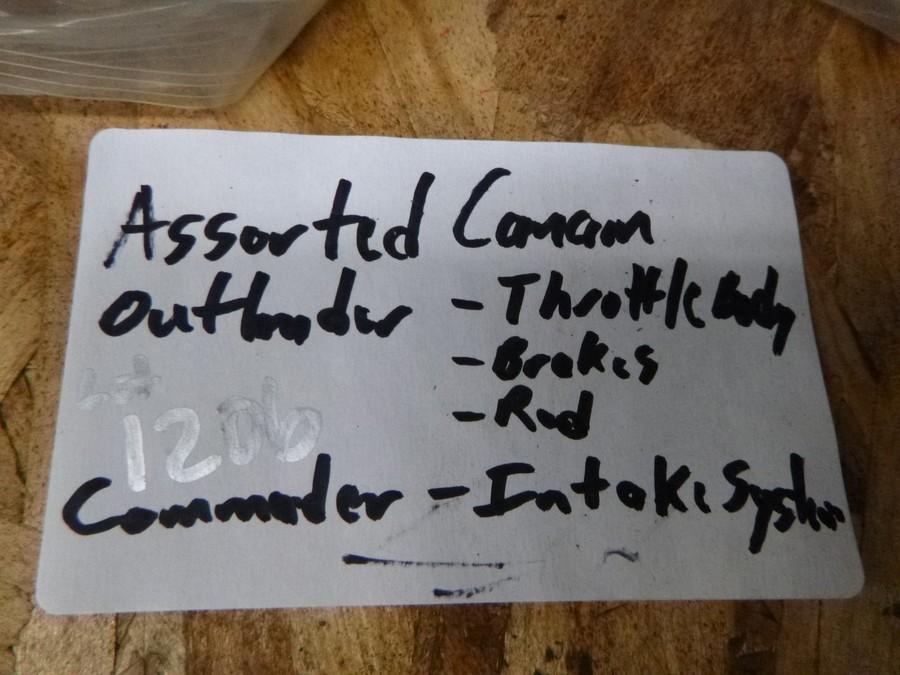 Assorted Canam
Outlander - Throttle Body
- Brakes
- Rad
Lot
1206
Commander - Intake System